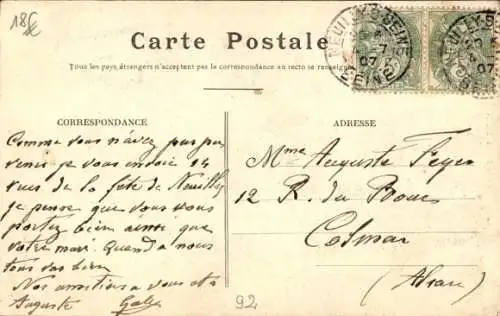 18€
Carte Postale
Tous les pays étrangers n'acceptent pas la correspondance au recto se renseigner
NEUILLY-S-SEINE
7
07
SEINE
NEUILLY-S
07
CORRESPONDANCE
Comme vous n'avez pas pu
venir je vous envoie
vues de la fête de Neuilly
je pense que vous vous
portez bien ainsi que
votre mari. Quand a nous
tous va bien
Nos amitiers a vous
Auguste
ADRESSE
Mme Auguste Feyer
12 R. du Bouc
Colmar
(Alsace)
92